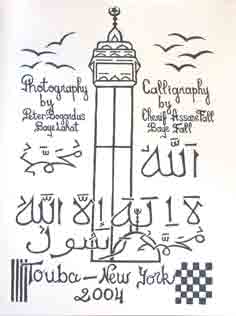 Photography
by
Peter Bogardus
Baye Lahat
Calligraphy
by
Cherif Assane Fall
Baye Fall
الله
محمد
لا إله إلا الله
محمد رسول
Touba – New York
2004